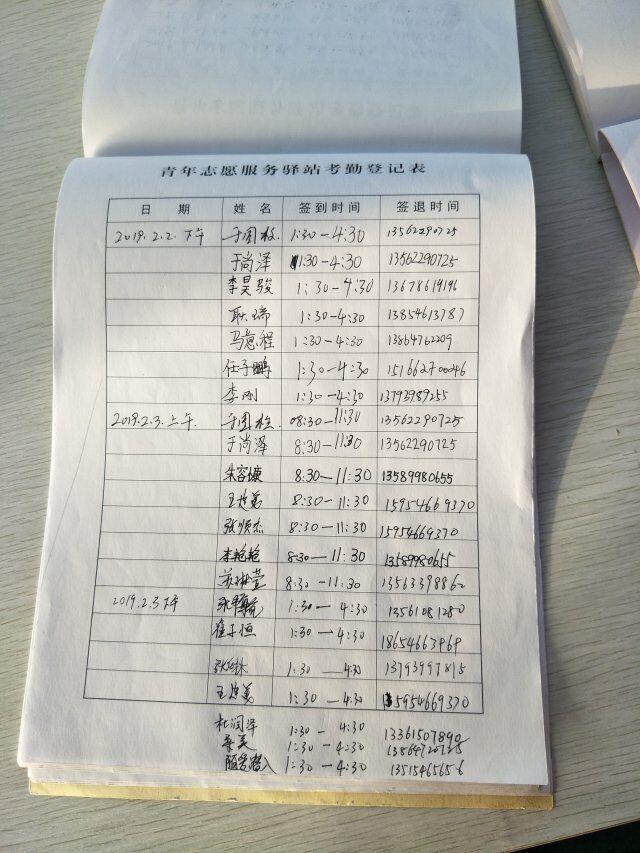 青年志愿服务驿站考勤登记表
日 期 姓 名 签到时间 签退时间
2019.2.2.下午 于国栋. 1:30-4:30 13562290725
于尚泽 1:30-4:30 13562290725
李昊骏 1:30-4:30 13678619196
耿瑞 1:30-4:30 13854613787
马意程 1:30-4:30 13864762209
任子鹏 1:30-4:30 15166270046
李刚 1:30-4:30 13793989255
2019.2.3.上午. 于国栋. 08:30-11:30 13562290725
于尚泽 8:30-11:30 13562290725
朱容慷 8:30-11:30 13589980655
8:30-11:30 15954669370
张顺杰 8:30-11:30 15954669370
李艳艳 8:30-11:30 13589980655
苏琳萱 8:30-11:30 13563398860
2019.2.3下午 1:30-4:30 13561081280
崔子恒 1:30-4:30 18654663969
1:30-4:30 13793997815
1:30-4:30 15954669370
杜润泽 1:30-4:30 13361507890
1:30-4:30 13864720725
1:30-4:30